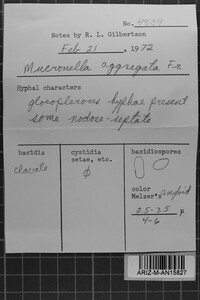 No. 4509
Notes by R. L. Gilbertson
Feb 21 , 1972
Mucronella aggregata Fr.
Hyphal characters
gloeopleurous hyphae present
some nodose-septate
basidia
clavate
cystidia
setae, etc.
φ
basidiospores
color
Melzer's amyloid
0.5-3.5 μ
4-6
ARIZ-M-AN15827